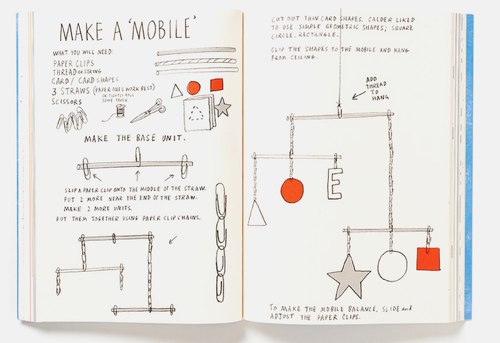 MAKE A 'MOBILE'
WHAT YOU WILL NEED:
PAPER CLIPS
THREAD OR STRING
CARD / CARD SHAPES
3 STRAWS (PAPER ONES WORK BEST)
OR TIGHTLY ROLL SOME PAPER
SCISSORS
MAKE THE BASE UNIT.
SLIP A PAPER CLIP ONTO THE MIDDLE OF THE STRAW.
PUT 2 MORE NEAR THE END OF THE STRAW.
MAKE 2 MORE UNITS.
PUT THEM TOGETHER USING PAPER CLIP CHAINS.
CUT OUT THIN CARD SHAPES. CALDER LIKED
TO USE SIMPLE GEOMETRIC SHAPES; SQUARE
CIRCLE, RECTANGLE.
CLIP THE SHAPES TO THE MOBILE AND HANG
FROM CEILING.
ADD
THREAD
TO
HANG
E
TO MAKE THE MOBILE BALANCE, SLIDE and
ADJUST THE PAPER CLIPS.